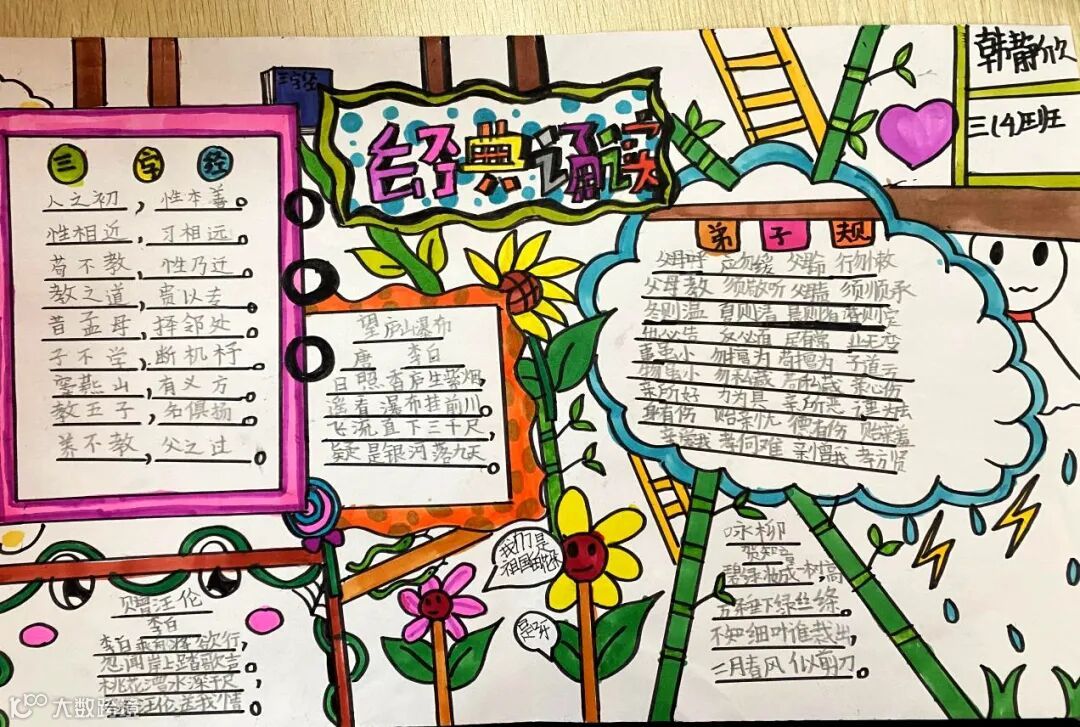 韩静欣
三(4)班
三字经
经典诵读
三字经
人之初,性本善。
性相近,习相远。
苟不教,性乃迁。
教之道,贵以专。
昔孟母,择邻处。
子不学,断机杼。
窦燕山,有义方。
教五子,名俱扬。
养不教,父之过。
望庐山瀑布
唐 李白
日照香庐生紫烟,
遥看瀑布挂前川。
飞流直下三千尺,
疑是银河落九天。
弟子规
父母呼 应勿缓 父母命 行勿懒
父母教 须敬听 父母责 须顺承
冬则温 夏则凊 晨则省 昏则定
出必告 反必面 居有常 业无变
事虽小 勿擅为 苟擅为 子道亏
物虽小 勿私藏 苟私藏 亲心伤
亲所好 力为具 亲所恶 谨为去
身有伤 贻亲忧 德有伤 贻亲羞
亲爱我 孝何难 亲憎我 孝方贤
我们是祖国的花朵
是呀
赠汪伦
李白
李白乘舟将欲行,
忽闻岸上踏歌声。
桃花潭水深千尺,
汪伦送我情。
咏柳
贺知章
碧玉妆成一树高,
万条垂下绿丝绦。
不知细叶谁裁出,
二月春风似剪刀。
大数跨境